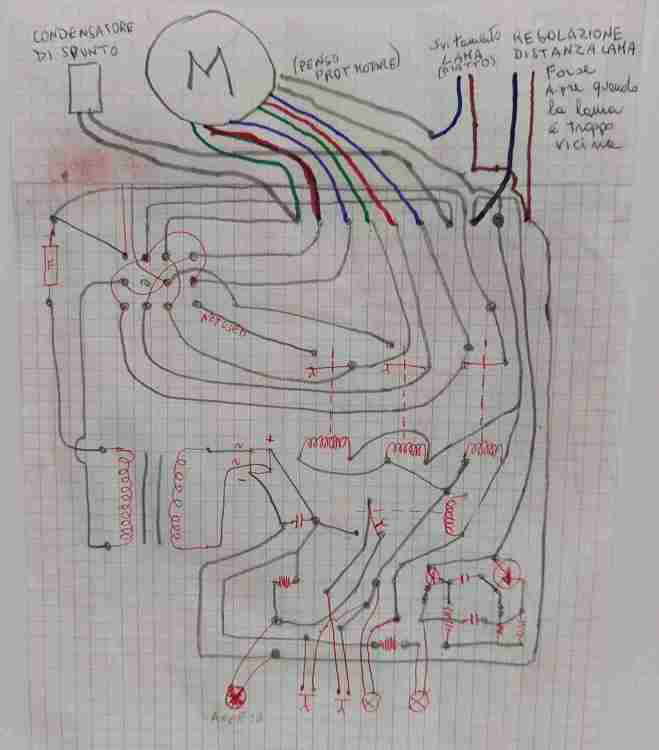 CONDENSATORE
DI SPUNTO
M
(PENSO
PROT MOTORE)
Svitamento
LAMA
REGOLAZIONE
DISTANZA LAMA
Forse
Apre quando
la lama
è troppo
vicina
F
NOT USED
+
~
~
-